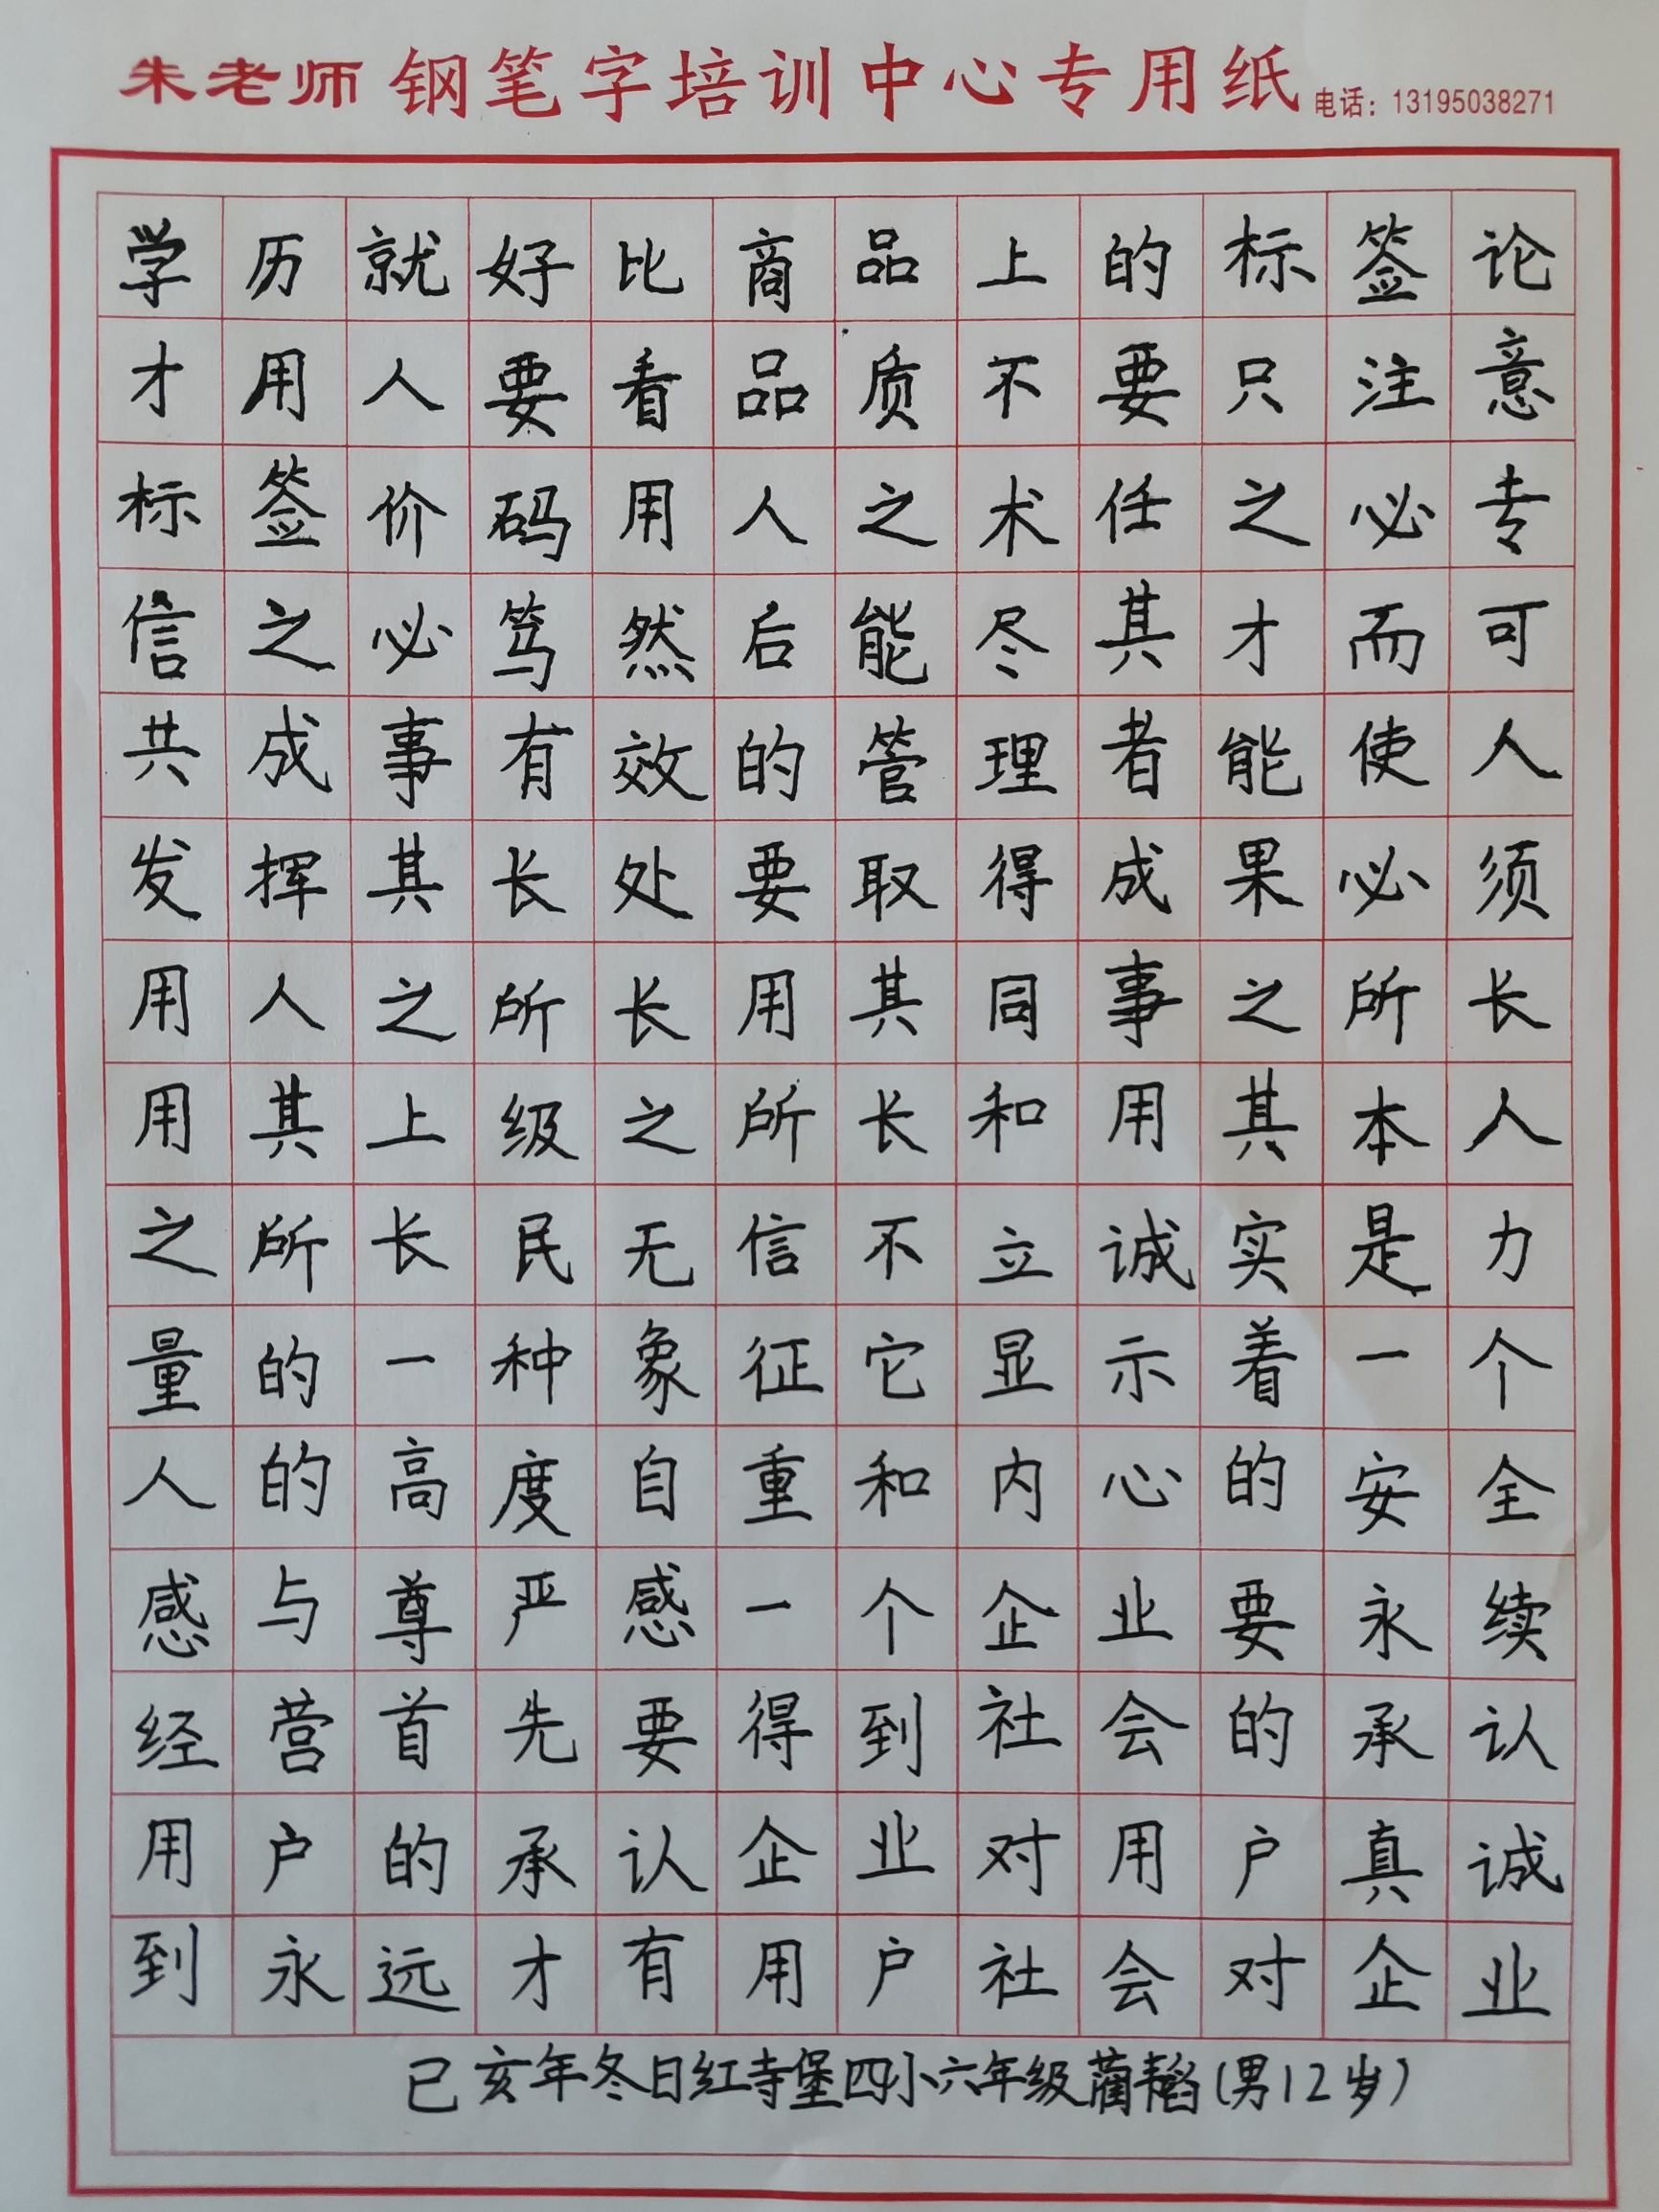 朱老师 钢笔字培训中心专用纸 电话：13195038271
学历就好比商品上的标签论
才用人要看品质不要只注意
标签价码用人之术任之必专
信之必笃然后能尽其才而可
共成事有效的管理者能使人
发挥其长处要取得成果必须
用人之所长用其同事之所长
用其上级之所长和用其本人
之所长民无信不立诚实是力
量的一种象征它显示着一个
人的高度自重和内心的安全
感与尊严感一个企业要永续
经营首先要得到社会的承认
用户的承认企业对用户真诚
到永远才有用户社会对企业
己亥年冬日红寺堡四小六年级蔺韬(男12岁)